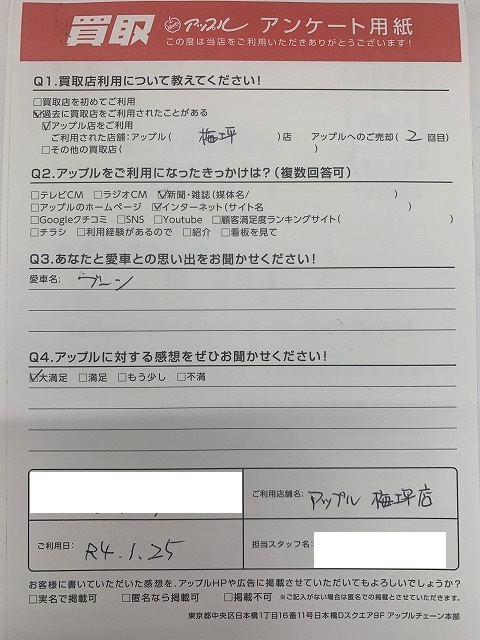 買取 アップル アンケート用紙
この度は当店をご利用いただきありがとうございます!
Q1.買取店利用について教えてください!
□買取店を初めてご利用
☑過去に買取店をご利用されたことがある
☑アップル店をご利用
ご利用された店舗:アップル( 梅坪 )店 アップルへのご売却( 2 回目)
□その他の買取店( )
Q2.アップルをご利用になったきっかけは?(複数回答可)
□テレビCM □ラジオCM ☑新聞・雑誌(媒体名/ )
□アップルのホームページ ☑インターネット(サイト名 )
□Googleクチコミ □SNS □Youtube □顧客満足度ランキングサイト( )
□チラシ □利用経験があるので □紹介 □看板を見て
Q3.あなたと愛車との思い出をお聞かせください!
愛車名: ブーン
Q4.アップルに対する感想をぜひお聞かせください!
☑大満足 □満足 □もう少し □不満
ご利用店舗名: アップル 梅坪店
ご利用日: R4.1.25
担当スタッフ名:
お客様に書いていただいた感想を、アップルHPや広告に掲載させていただいてもよろしいでしょうか?
□実名で掲載可 □匿名なら掲載可 □掲載不可 ※ご記入がない場合は匿名での掲載とさせていただきます。
東京都中央区日本橋1丁目16番11号日本橋Dスクエア9F アップルチェーン本部